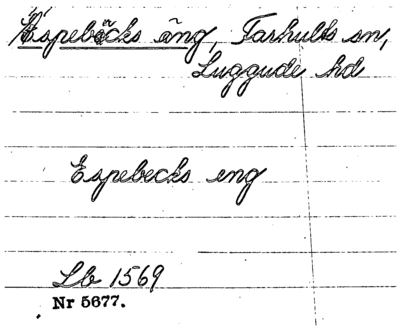 Espebäcks äng, Farhults sn,
Luggude hd
Espebecks eng
Lb 1569
Nr 5677.